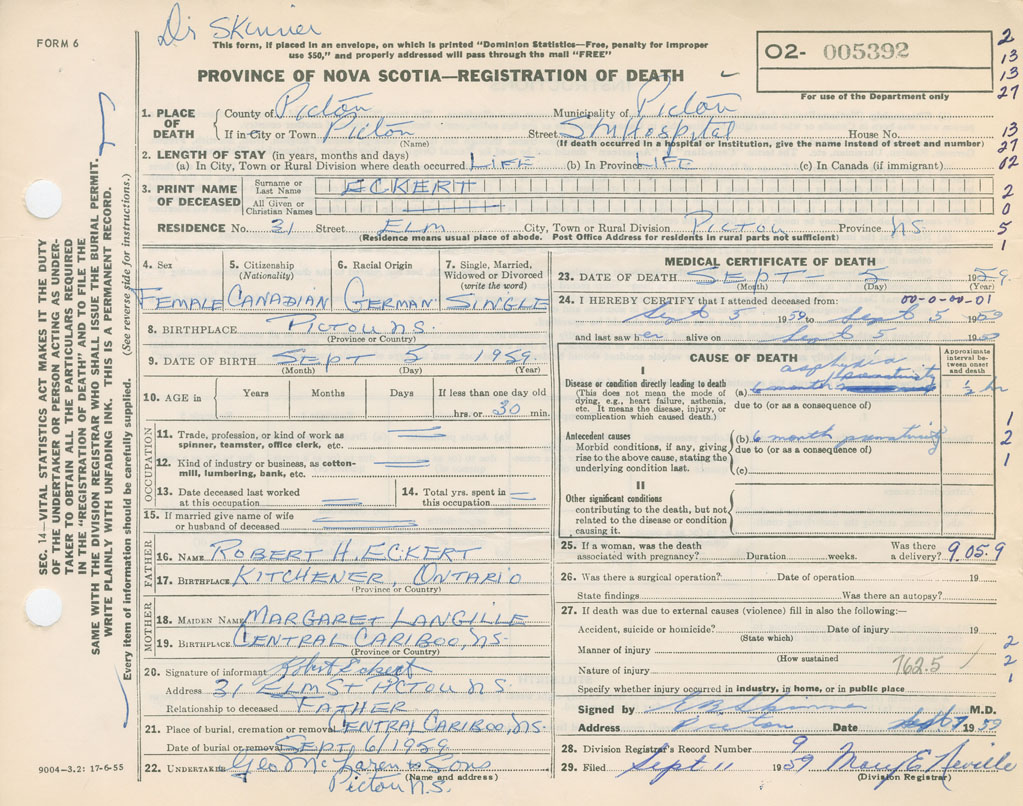 Dr Skinner
FORM 6
This form, if placed in an envelope, on which is printed "Dominion Statistics—Free, penalty for improper
use $50," and properly addressed will pass through the mail "FREE"
PROVINCE OF NOVA SCOTIA—REGISTRATION OF DEATH
O2- 005392
For use of the Department only
2
13
13
27
13
27
02
2
0
5
1
1. PLACE OF DEATH
County of Pictou Municipality of Pictou
If in City or Town Pictou Street SM Hospital House No.
(Name) (If death occurred in a hospital or institution, give the name instead of street and number)
2. LENGTH OF STAY (in years, months and days)
(a) In City, Town or Rural Division where death occurred LIFE (b) In Province LIFE (c) In Canada (if immigrant)
3. PRINT NAME OF DECEASED
Surname or Last Name ECKERT
All Given or Christian Names
RESIDENCE No. 31 Street ELM City, Town or Rural Division PICTOU Province N.S.
(Residence means usual place of abode. Post Office Address for residents in rural parts not sufficient)
4. Sex FEMALE
5. Citizenship (Nationality) CANADIAN
6. Racial Origin GERMAN
7. Single, Married, Widowed or Divorced (write the word) SINGLE
8. BIRTHPLACE PICTOU N.S.
(Province or Country)
9. DATE OF BIRTH SEPT 5 1959
(Month) (Day) (Year)
10. AGE in Years Months Days If less than one day old
hrs. or 30 min.
OCCUPATION
11. Trade, profession, or kind of work as
spinner, teamster, office clerk, etc.
12. Kind of industry or business, as cotton-
mill, lumbering, bank, etc.
13. Date deceased last worked
at this occupation
14. Total yrs. spent in
this occupation
15. If married give name of wife
or husband of deceased
FATHER
16. NAME ROBERT H. ECKERT
17. BIRTHPLACE KITCHENER, ONTARIO
(Province or Country)
MOTHER
18. MAIDEN NAME MARGARET LANGILLE
19. BIRTHPLACE CENTRAL CARIBOO, N.S.
(Province or Country)
20. Signature of informant Robert Eckert
Address 31 ELM ST PICTOU N.S.
Relationship to deceased FATHER
21. Place of burial, cremation or removal CENTRAL CARIBOO, N.S.
Date of burial or removal SEPT. 6/1959
22. UNDERTAKER Geo McLaren & Sons
(Name and address)
Pictou N.S.
9004-3.2: 17-6-55
MEDICAL CERTIFICATE OF DEATH
23. DATE OF DEATH SEPT - 5 1959
(Month) (Day) (Year)
24. I HEREBY CERTIFY that I attended deceased from: 00-0-00-01
Sept 5 1959 to Sept 5 1959
and last saw her alive on Sept 5 1959
CAUSE OF DEATH
Approximate interval between onset and death
I
Disease or condition directly leading to death
(This does not mean the mode of
dying, e.g., heart failure, asthenia,
etc. It means the disease, injury, or
complication which caused death.)
asphyxia
(a) 6 month prematurity ½ hr
due to (or as a consequence of)
Antecedent causes
Morbid conditions, if any, giving
rise to the above cause, stating the
underlying condition last.
(b) 6 month prematurity
due to (or as a consequence of)
(c)
II
Other significant conditions
contributing to the death, but not
related to the disease or condition
causing it.
1
2
1
25. If a woman, was the death
associated with pregnancy? Duration weeks. Was there
a delivery? 9.05.9
26. Was there a surgical operation? Date of operation 19
State findings Was there an autopsy?
27. If death was due to external causes (violence) fill in also the following:—
Accident, suicide or homicide? Date of injury 19
(State which)
Manner of injury
(How sustained
Nature of injury 762.5
Specify whether injury occurred in industry, in home, or in public place
2
2
1
Signed by M.D.
Address Pictou Date Sept 7 1959
28. Division Registrar's Record Number 9
29. Filed Sept 11 1959 Mary E Neville
(Division Registrar)
SEC. 14—VITAL STATISTICS ACT MAKES IT THE DUTY
OF THE UNDERTAKER OR PERSON ACTING AS UNDER-
TAKER TO OBTAIN ALL THE PARTICULARS REQUIRED
IN THE "REGISTRATION OF DEATH" AND TO FILE THE
SAME WITH THE DIVISION REGISTRAR WHO SHALL ISSUE THE BURIAL PERMIT.
WRITE PLAINLY WITH UNFADING INK. THIS IS A PERMANENT RECORD.
Every item of information should be carefully supplied. (See reverse side for instructions.)